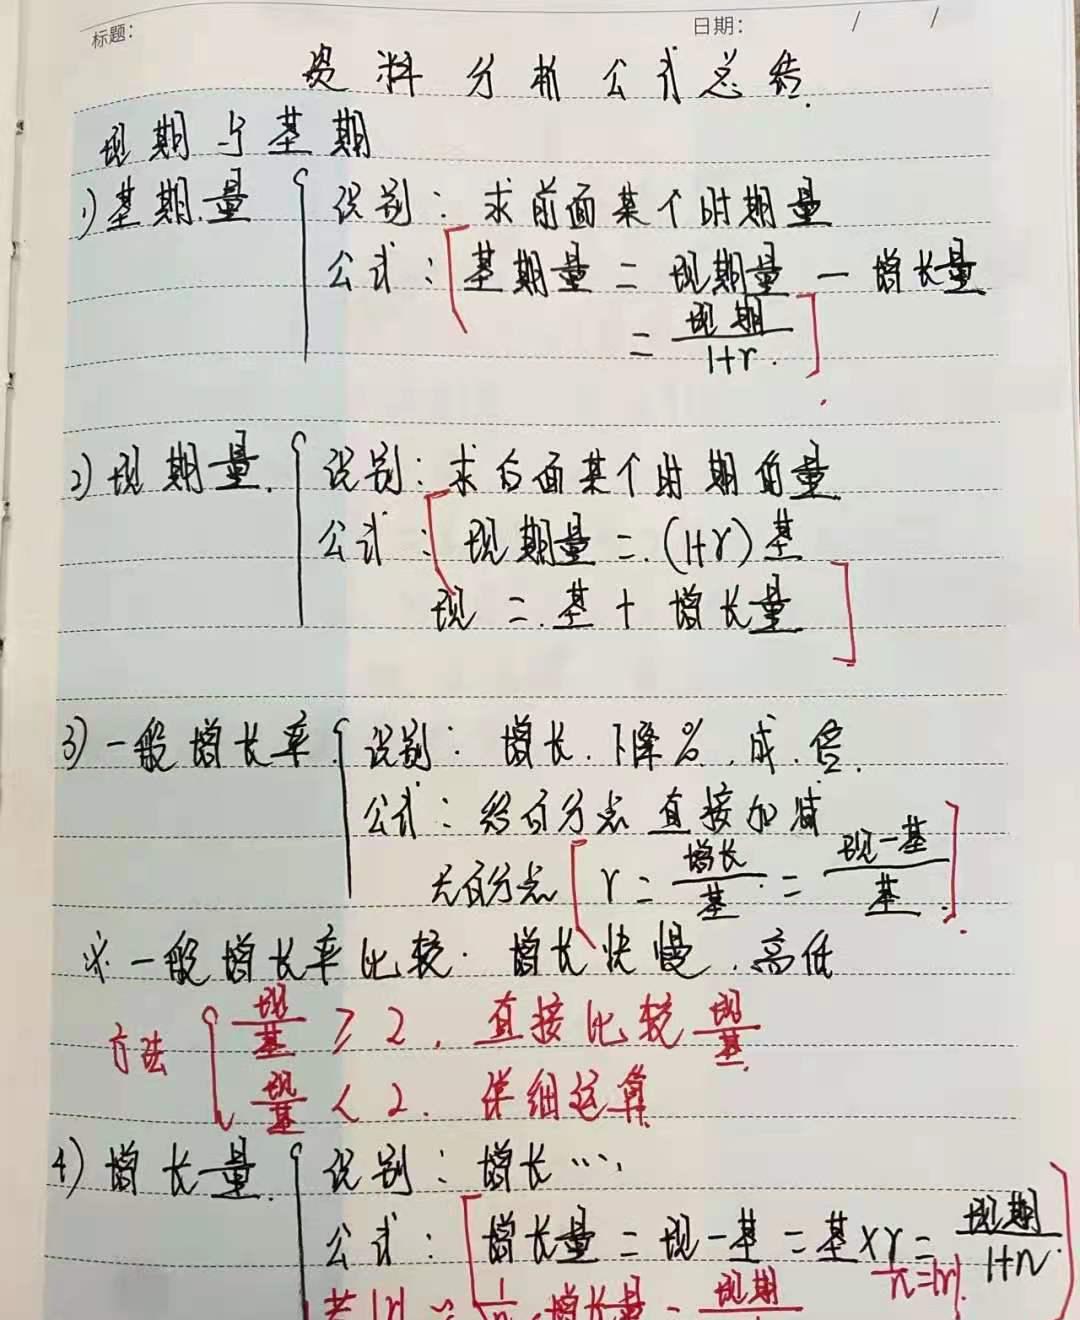 标题: 日期: / /
资料分析公式总结.
现期与基期
1)基期量 识别: 求前面某个时期量
公式: [基期量 = 现期量 - 增长量
= 现期/1+r.]
2)现期量. 识别: 求后面某个时期的量
公式: [现期量 = (1+r)基
现 = 基 + 增长量]
3)一般增长率 识别: 增长.下降%.成.倍.
公式: 给百分点 直接加减
无百分点 [r = 增长/基 = 现-基/基.]
※一般增长率比较. 增长快慢.高低
方法 现/基 ≥ 2. 直接比较 现/基
现/基 < 2. 详细运算
4)增长量. 识别: 增长…
公式: [增长量 = 现-基 = 基×r = 现期/1+n.]
1/n=|r|.
若|r| ≈ 1/n. 增长量 = 现期